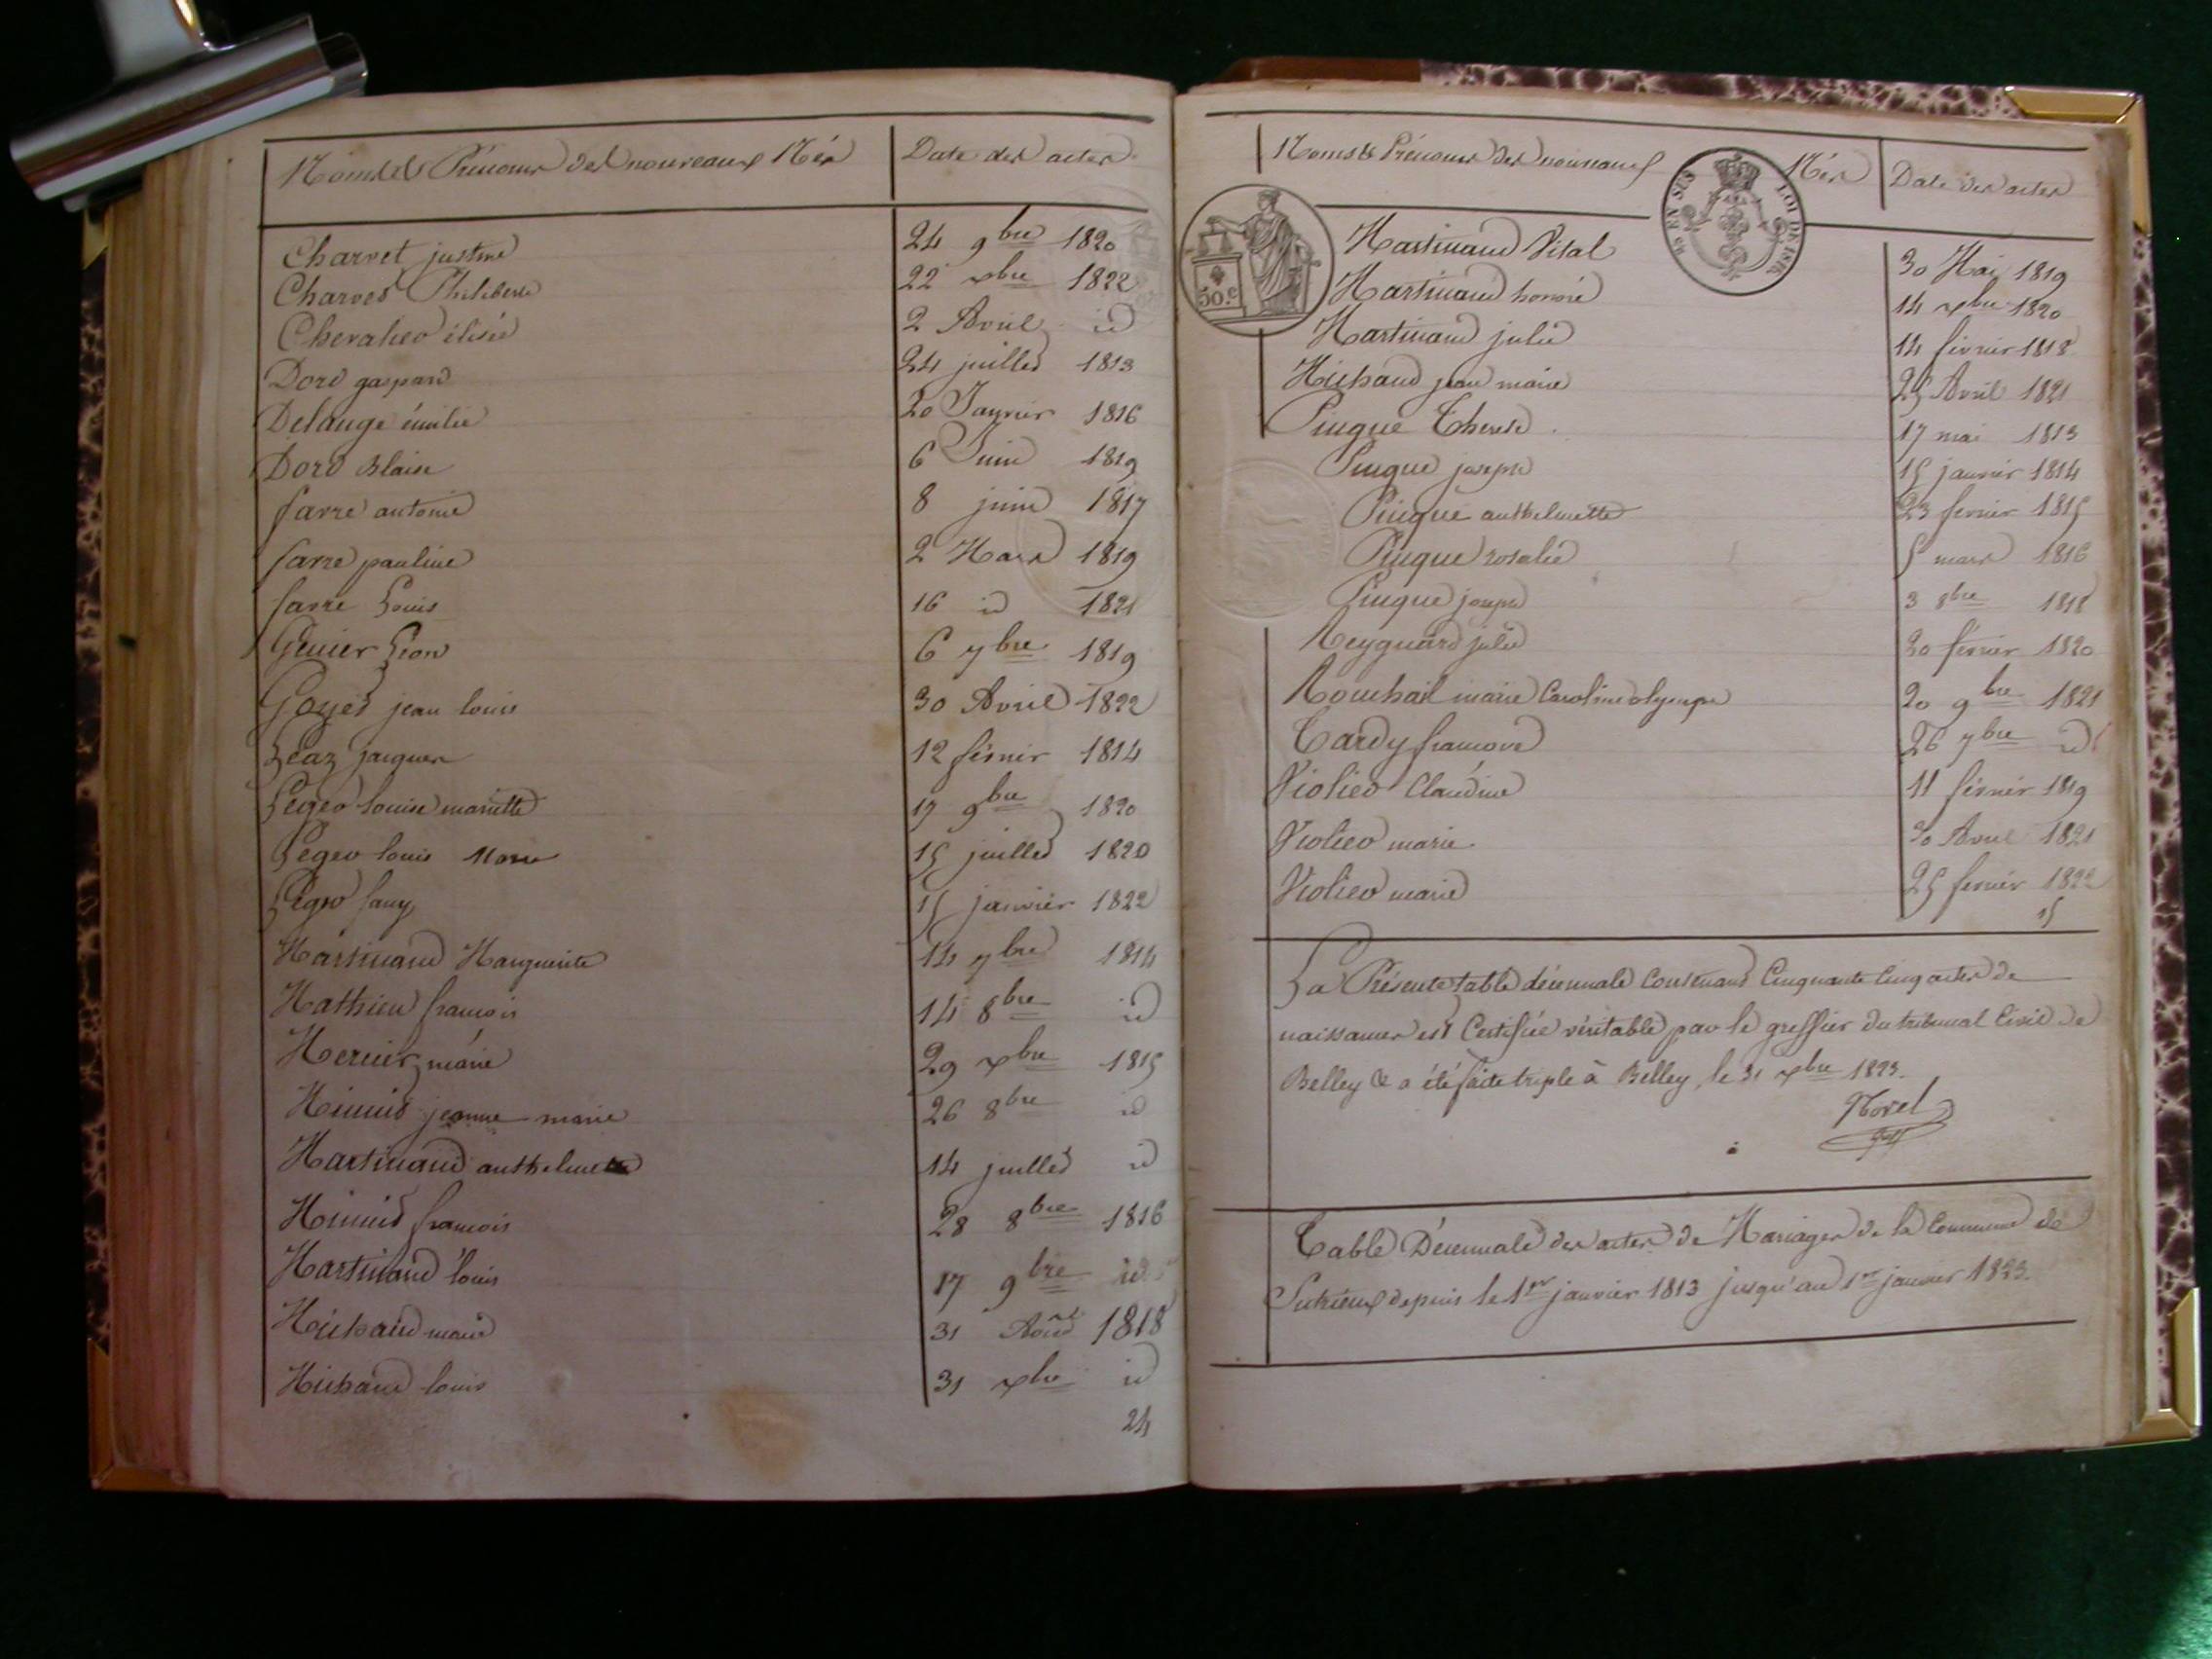 Noms et Prénoms des nouveaux Nés Date des actes
Charvet justine 24 9bre 1820
Charvet Philiberte 22 xbre 1822
Chevalier élisée 2 Avril id
Dord gaspard 24 juillet 1813
Delauge émilie 20 Janvier 1816
Dord Blaise 6 Juin 1819
favre antoine 8 juin 1817
favre pauline 2 Mars 1819
favre Louis 16 id 1821
Genier Léon 6 7bre 1819
Goyet jean louis 30 Avril 1822
Leaz jacques 12 février 1814
Leger louise mariette 17 9bre 1820
Leger louis Marie 15 juillet 1820
Leger fany 15 janvier 1822
Martinand Marguerite 14 7bre 1814
Mathieu francois 14 8bre id
Mercier marie 29 xbre 1815
jeanne marie 26 8bre id
Martinand anthelmette 14 juillet id
francois 28 8bre 1816
Martinand louis 17 9bre id
Michaud marie 31 Aout 1818
Michaud louis 31 xbre id
24
Noms & Prénoms des nouveaux Nés Date des actes
50.c
EN SUS LOI DE 1816
Martinand Vital 30 Mai 1819
Martinand honoré 14 xbre 1820
Martinand julie 14 février 1818
Michaud jean marie 25 Avril 1821
Pingue Therese 17 mai 1813
Pingue joseph 15 janvier 1814
Pingue anthelmette 23 fevrier 1815
Pingue rosalie 5 mars 1816
Pingue joseph 3 8bre 1818
Reyguard julie 20 fevrier 1820
Rouchail marie Caroline olympe 20 9bre 1821
Tardy francois 26 7bre id
Violier Claudine 11 février 1819
Violier marie 30 Avril 1821
Violier marie 25 fevrier 1822
15
La Présente table décennale Contenant Cinquante Cinq actes de
naissances est Certifiée véritable par le greffier du tribunal Civil de
Belley & a été faite triple à Belley le 31 xbre 1823.
Morel
Table Décennale des actes de Mariages de la Commune de
Sutrieux depuis le 1er janvier 1813 jusqu'au 1er janvier 1823.